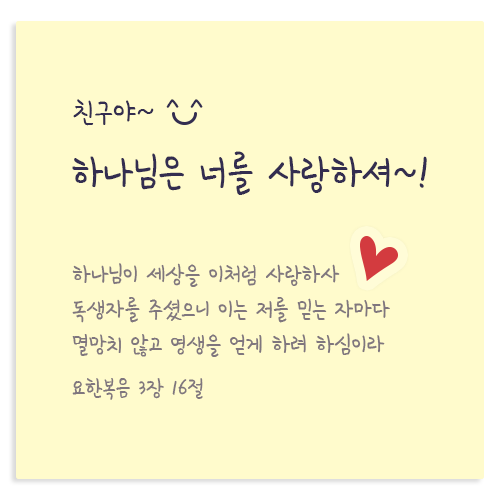 친구야~ ^^
하나님은 너를 사랑하셔~!
하나님이 세상을 이처럼 사랑하사
독생자를 주셨으니 이는 저를 믿는 자마다
멸망치 않고 영생을 얻게 하려 하심이라
요한복음 3장 16절